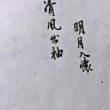 清風出袖
明月入懷